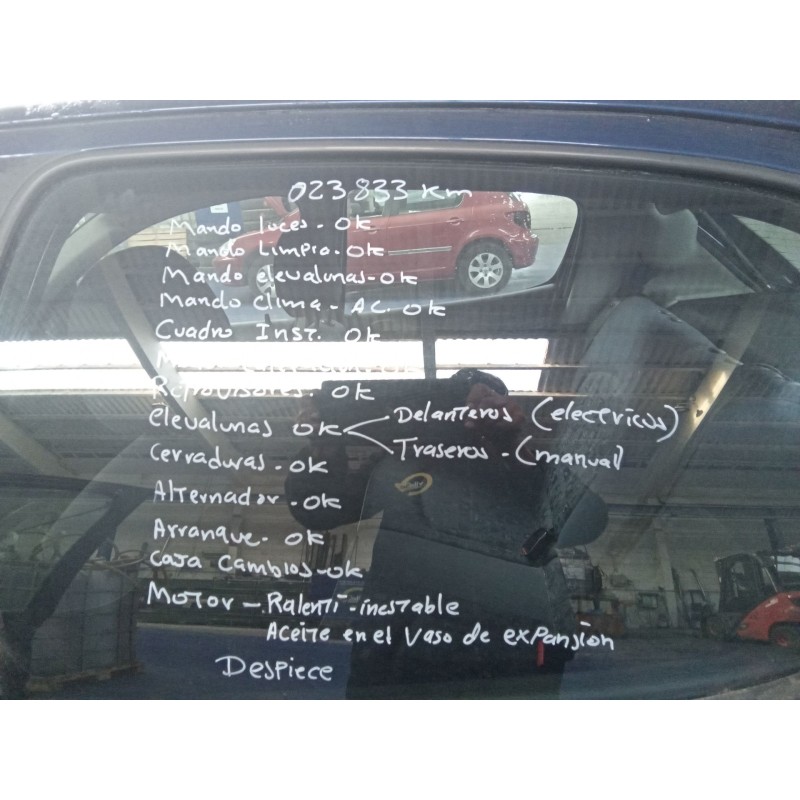 023833 km
Mando luces - OK
Mando Limpia - OK
Mando elevalunas - OK
Mando clima - AC. OK
Cuadro Inst. OK
OK
Retrovisores. OK
elevalunas OK Delanteros (electricos)
Traseros - (manual)
Cerraduras - OK
Alternador - OK
Arranque - OK
Caja Cambios - OK
Motor - Ralentí - inestable
Aceite en el Vaso de expansion
Despiece